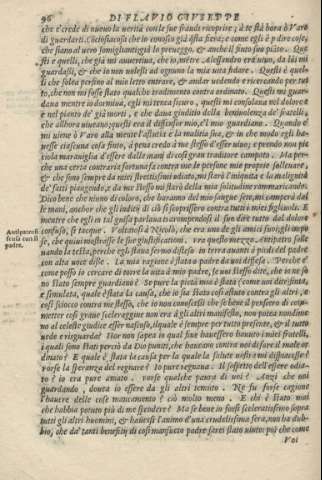 96 DI FLAVIO GIUSEPPE
che s'crede di nuovo la verità con le sue fraudi ricoprire; à te stà hora ò Varo
di guardarti. Cociosiacosa che io conosco già questa fera; e come egli è pdre cose,
che siano al vero somiglianti già lo preueggo, & anche il finto suo piāto. Que
sti è quelli, che già mi auuertiua, che io, mētre Alessandro era uiuo, da lui mi
guardassi, & che io non uolessi ad ognuno la mia uita fidare. Questi è quel-
li che solea persino al mio letto entrare, & andar uedendo e ricercando per tut
to, che non mi fusse stato qualche tradimento contra ordinato. Questi mi guar
daua mentre io dormiua, egli mi tenea sicuro, questi mi consolaua nel dolore e
nel pianto de' già morti, e che daua giuditio della beniuolenza de' fratelli,
che allhora uiueano; questi era il diffensor mio, e'l mio guardiano. Quando e'
mi uiene ò Varo alla mente l'astutia e la malitia sua, & in che modo egli ha-
uesse ciascuna cosa finto, à pena credo à me stesso d'esser uiuo; e prendo non pic
ciola marauiglia d'essere dalle mani di cosi gran traditore campato. Ma per-
che una certa contraria fortuna fa contra me le persone mie proprie solleuare,
& che sono sempre da miei strettissimi odiato, mi starò l'iniquità e la malignità
de' fatti piangendo, e da me stesso mi starò della mia solitudine rammaricando.
Dico bene che niuno di coloro, che haranno del mio sangue sete, mi camperà dal
le mani, anchor che gli indici di ciò si scuoprissero contra tutti i miei figliuoli. E
mentre che egli in tal guisa parlaua interrompendosi il suo dire tutto dal dolore
confuso, si tacque. Voltatosi à Nicolò, che era uno de gli amici suoi gli impo
se, che quiui mostrasse le sue giustificationi. era questo mezzo, Antipatro solle
uando la testa, perche egli staua fermo disteso in terra auanti à piedi del padre
con alta uoce disse. La mia ragione è stata padre da uoi difesa. Perche e'
come posso io cercare di torre la uita à mio padre, se uoi stesso dite, che io ne so
no stato sempre guardiano? Se pure la pietà mea è stata (come uoi dite) finta,
e simulata, quale è stata la causa, che io sia stato cosi astuto contra gli altri, e
cosi sciocco contra me stesso, che io non conoscessi che se bene il pensiero di com-
mettere cosi graue sceleraggine non era à gli altri manifesto, non potea nondime
no al celeste giudice esser nascoso, ilquale è sempre per tutto presente, & il tutto
uede e risguarda? Hor non sapea io quel fine hauessero hauuto i miei fratelli,
i quali sono stati perciò da Dio puniti, che haueano contra uoi disfare il male or
dinato? E quale è stata la causa per la quale la salute uostra mi dispiacesse?
Forse la speranza del regnare? Io pure regnaua. Il sospetto dell'essere odia-
to? io era pure amato. Forse qualche paura di uoi? Anzi che uoi
guardando, douea io essere da gli altri temuto. Ne fu forse cagione
l'hauere delle cose mancamento? ciò molto meno. E chi è stato mai
che habbia potuto più di me spendere? Ma se bene io fussi sceleratissimo sopra
tutti gli altri huomini, & hauessi l'animo d'una crudelissima fera, non ha dub-
bio, che da' tanti benefitij di cosi mansueto padre sarei stato uinto; poi che come
Voi
Antipatro si
scusa con il
padre.